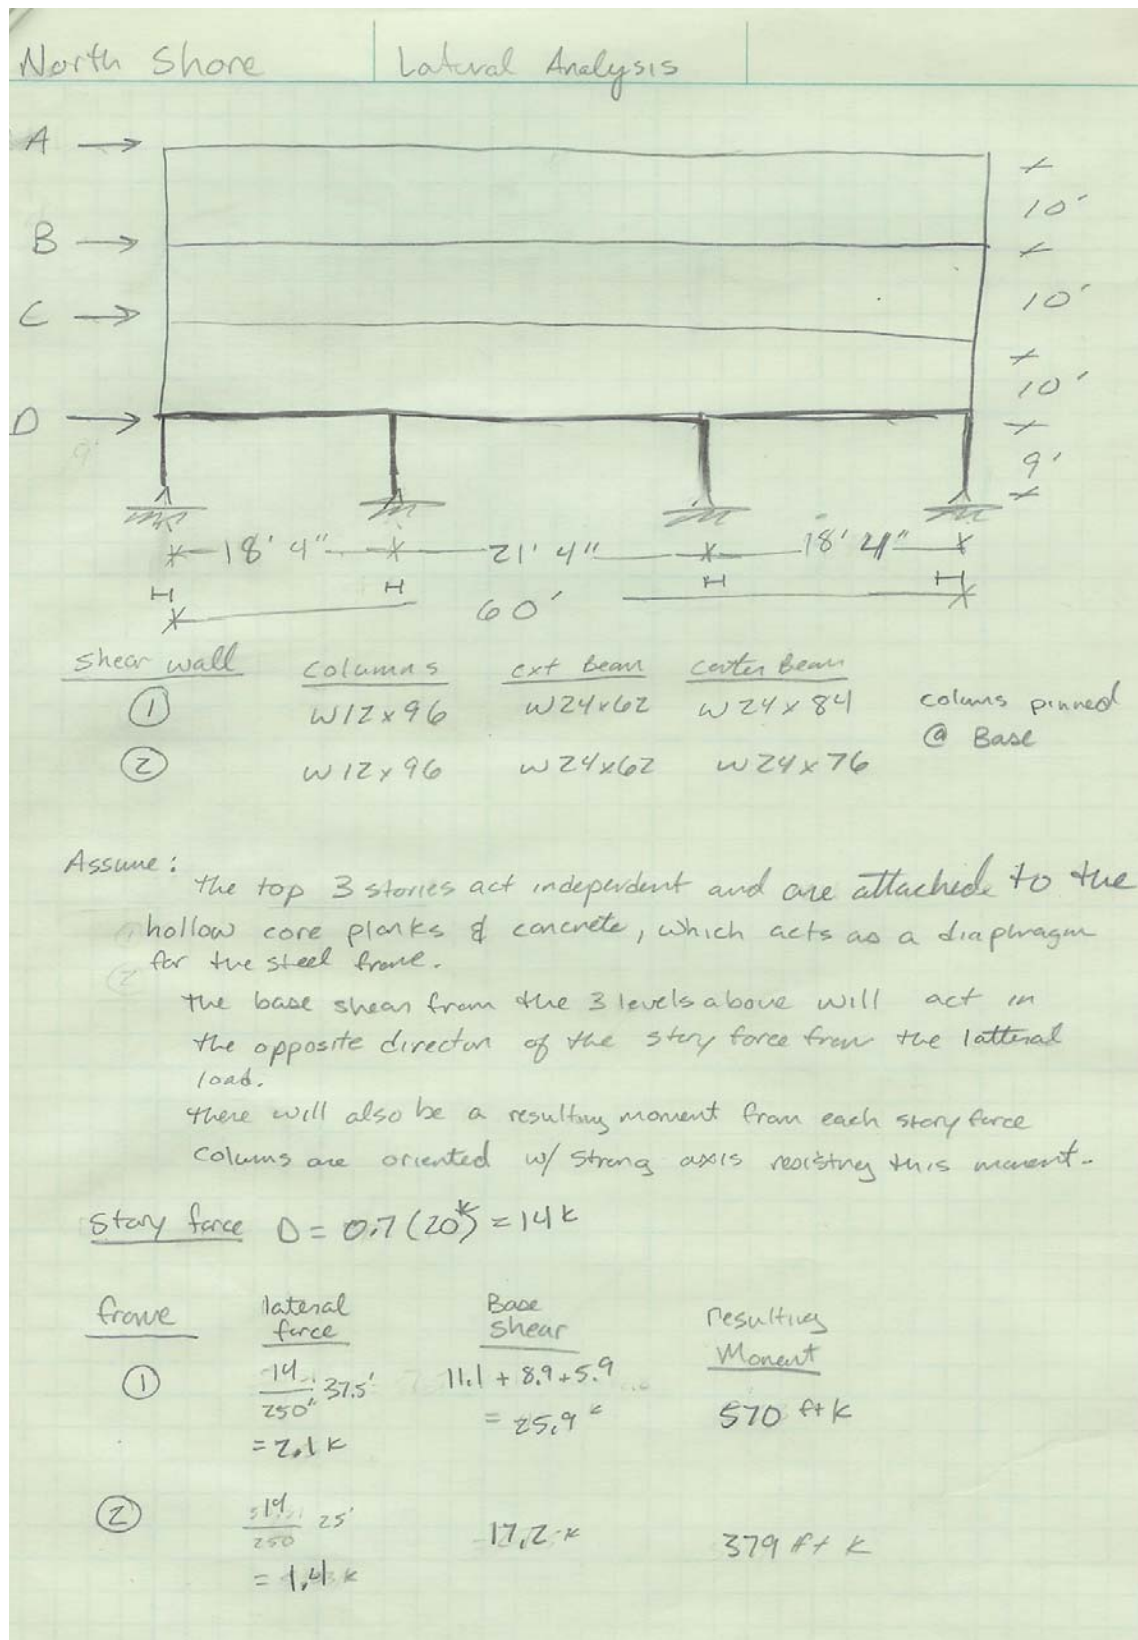 North Shore Lateral Analysis
A →
10'
B →
10'
C →
10'
D →
9'
9'
18' 4" 21' 4" 18' 4"
H H H H
60'
shear wall columns ext Beam center Beam
① W12x96 W24x62 W24x84 colums pinned
@ Base
② W12x96 W24x62 W24x76
Assume:
the top 3 stories act independent and are attached to the
hollow core planks & concrete, which acts as a diaphragm
for the steel frame.
the base shear from the 3 levels above will act in
the opposite direction of the story force from the latteral
load.
there will also be a resulting moment from each story force
colums are oriented w/ strong axis resisting this moment.
Story force D = 0.7 (20k) = 14k
frame lateral force Base shear resulting Moment
① 14/250' 37.5' 11.1 + 8.9 + 5.9
= 25.9 k 570 ft k
= 2.1 k
② 14/250 25' 17.2 k 379 ft k
= 1.4 k